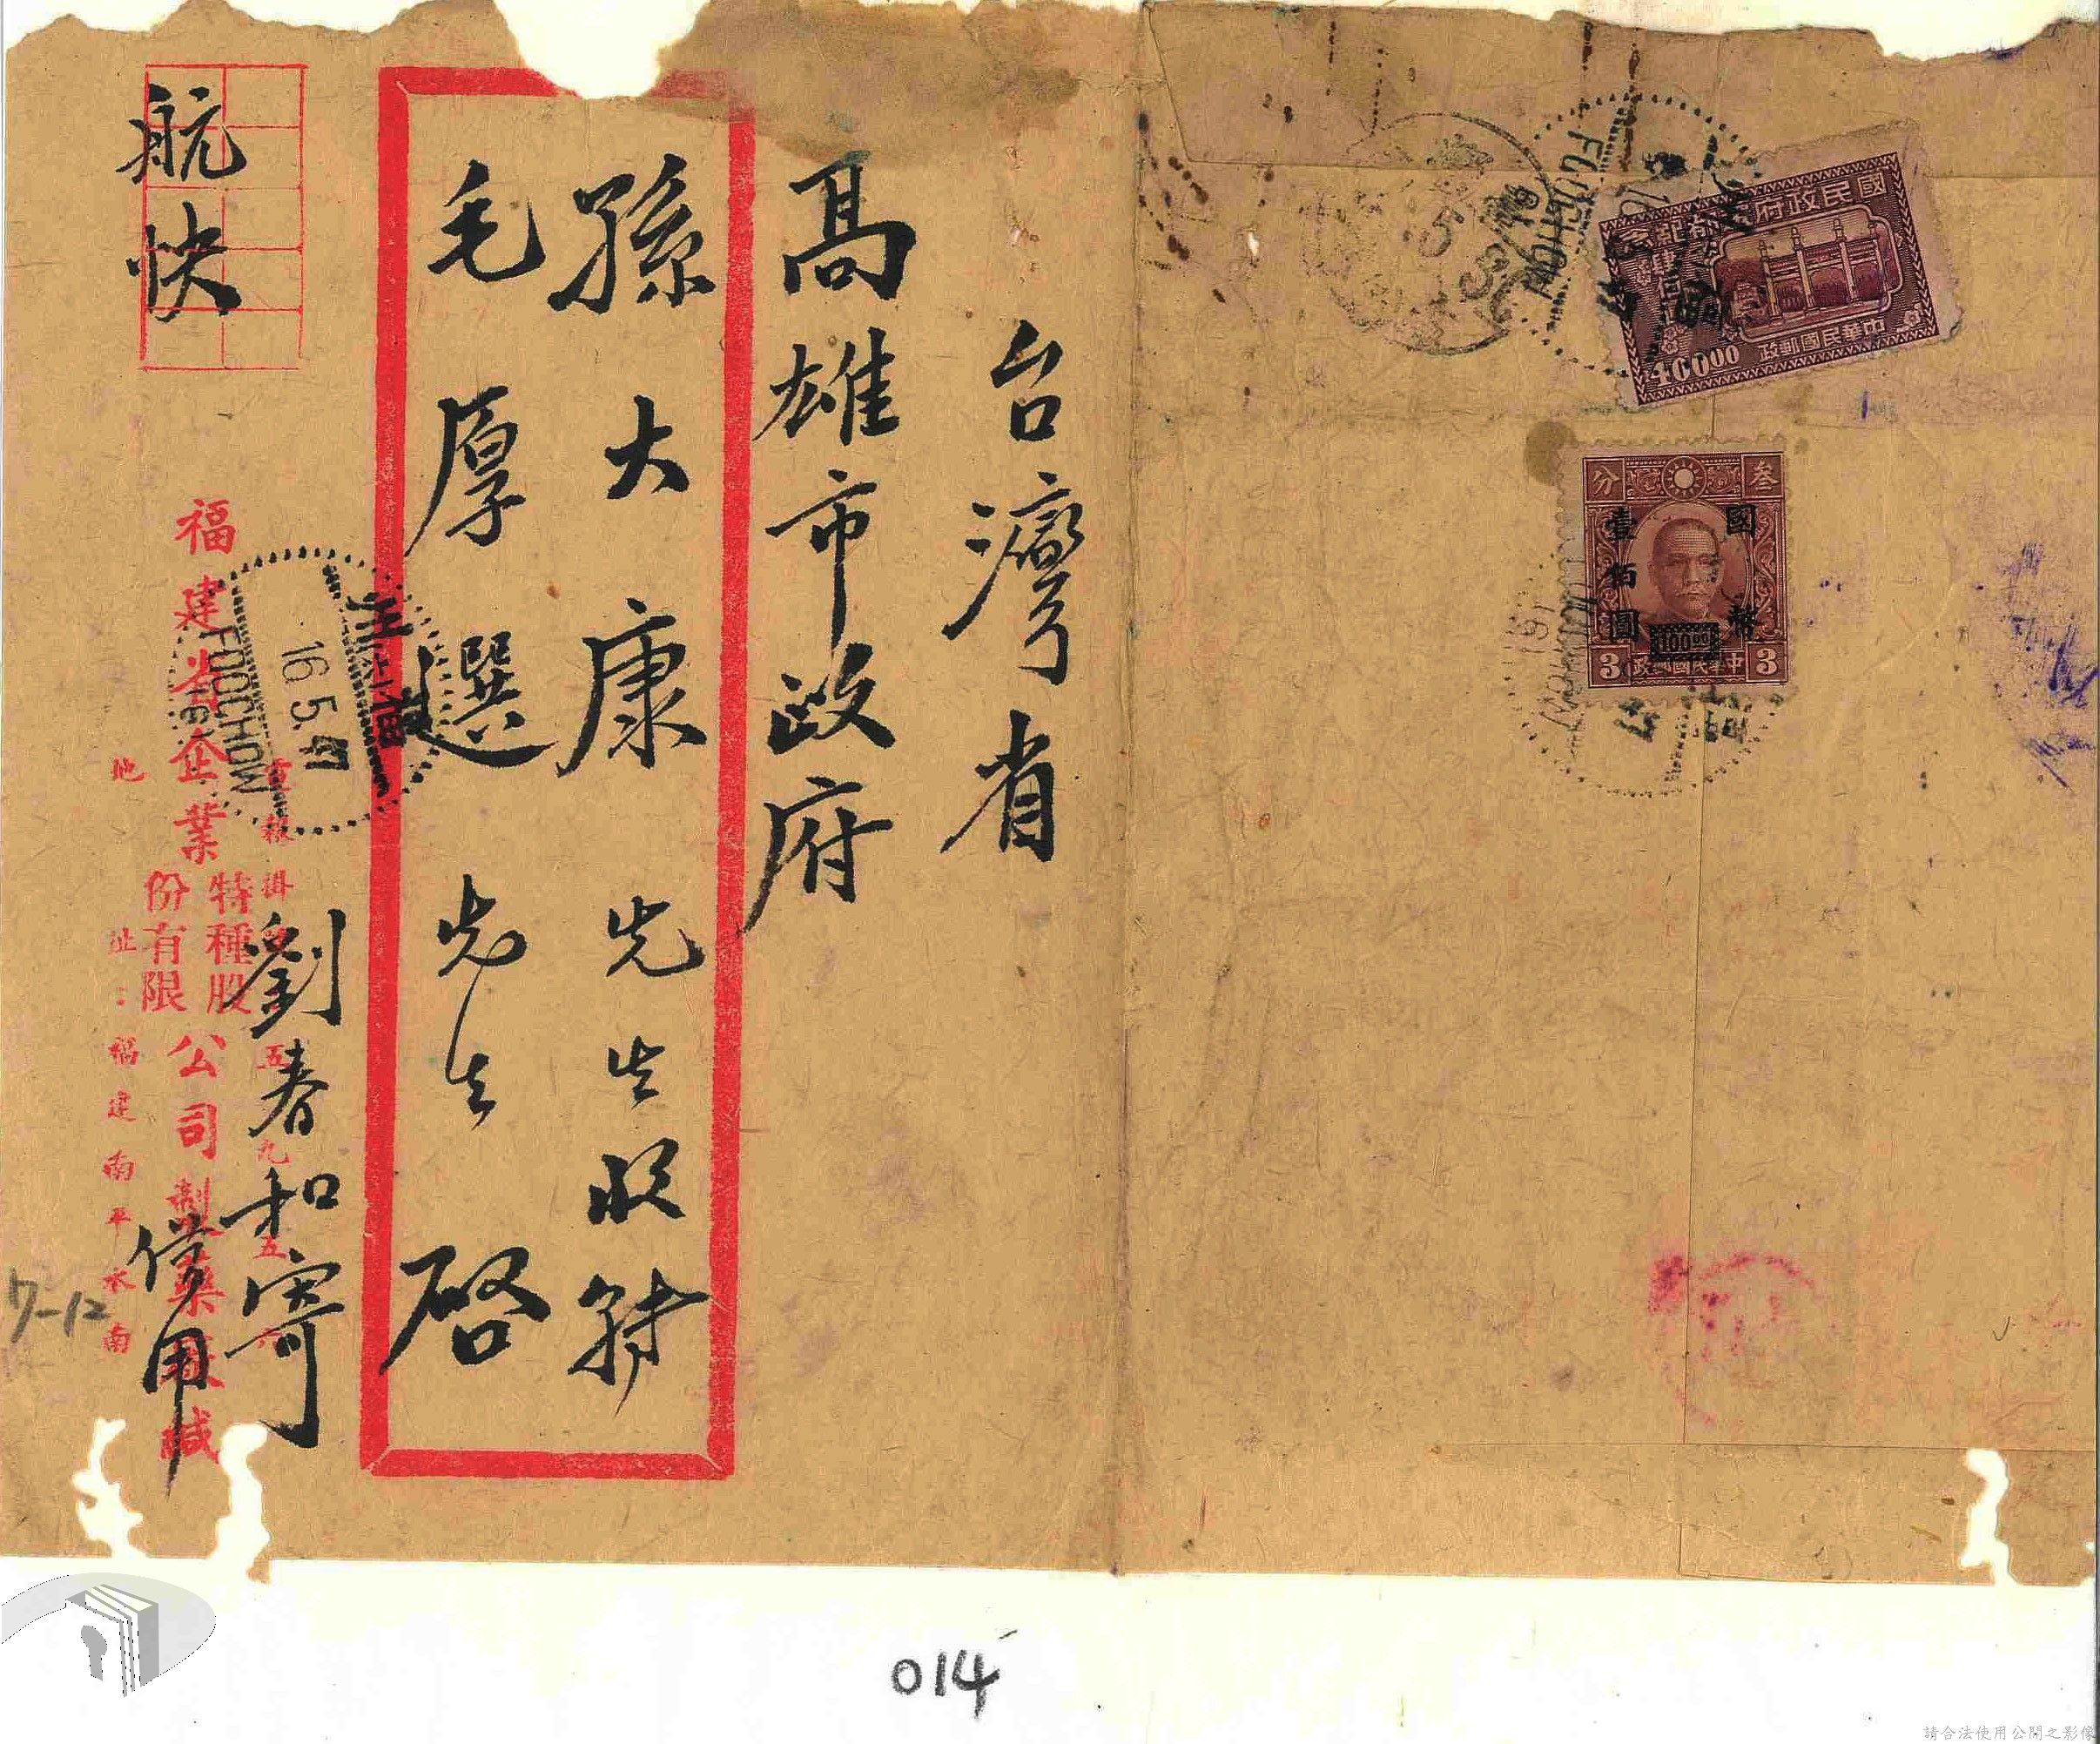 台灣省
高雄市政府
孫大康先生收轉
毛厚選先生 啓
航快
劉春和寄
借用
福建省企業特種股份有限公司製藥廠緘
地址:福建南平水南
16.5.47
FOOCHOW
7-12
FOOCHOW
國民政府
中華民國郵政
400.00
叁分
國幣
壹佰圓
100.00
3 中華民國郵政 3
014
請合法使用公開之影像